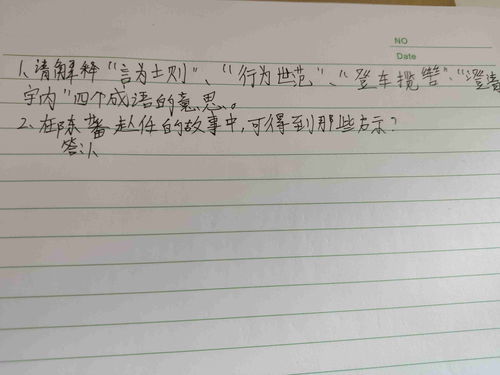 NO
Date
1、请解释“言为士则”、“行为世范”、“登车揽辔”、“澄清
宇内”四个成语的意思。
2、在陈蕃赴任的故事中,可得到那些启示?
答: